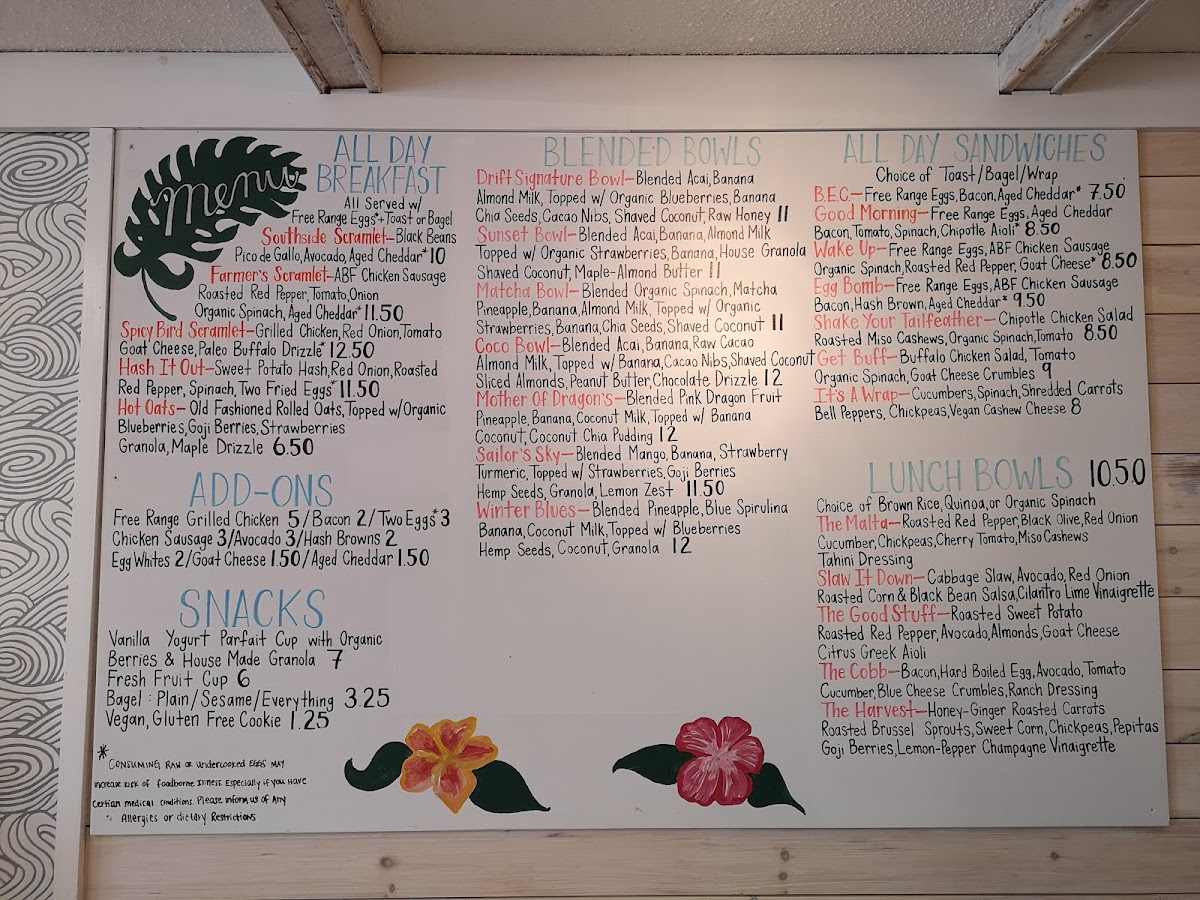 menu
ALL DAY
BREAKFAST
All Served w/
Free Range Eggs*+Toast or Bagel
Southside Scramlet—Black Beans
Pico de Gallo, Avocado, Aged Cheddar* 10
Farmer's Scramlet—ABF Chicken Sausage
Roasted Red Pepper, Tomato, Onion
Organic Spinach, Aged Cheddar* 11.50
Spicy Bird Scramlet—Grilled Chicken, Red Onion, Tomato
Goat Cheese, Paleo Buffalo Drizzle* 12.50
Hash It Out—Sweet Potato Hash, Red Onion, Roasted
Red Pepper, Spinach, Two Fried Eggs* 11.50
Hot Oats—Old Fashioned Rolled Oats, Topped w/Organic
Blueberries, Goji Berries, Strawberries
Granola, Maple Drizzle 6.50
ADD-ONS
Free Range Grilled Chicken 5/Bacon 2/Two Eggs* 3
Chicken Sausage 3/Avocado 3/Hash Browns 2
Egg Whites 2/Goat Cheese 1.50/Aged Cheddar 1.50
SNACKS
Vanilla Yogurt Parfait Cup with Organic
Berries & House Made Granola 7
Fresh Fruit Cup 6
Bagel: Plain/Sesame/Everything 3.25
Vegan, Gluten Free Cookie 1.25
* Consuming raw or undercooked eggs may
increase risk of foodborne illness especially if you have
certian medical conditions. Please inform us of any
Allergies or dietary Restrictions
BLENDED BOWLS
Drift Signature Bowl—Blended Acai, Banana
Almond Milk, Topped w/ Organic Blueberries, Banana
Chia Seeds, Cacao Nibs, Shaved Coconut, Raw Honey 11
Sunset Bowl—Blended Acai, Banana, Almond Milk
Topped w/ Organic Strawberries, Banana, House Granola
Shaved Coconut, Maple-Almond Butter 11
Matcha Bowl—Blended Organic Spinach, Matcha
Pineapple, Banana, Almond Milk, Topped w/ Organic
Strawberries, Banana, Chia Seeds, Shaved Coconut 11
Coco Bowl—Blended Acai, Banana, Raw Cacao
Almond Milk, Topped w/ Banana, Cacao Nibs, Shaved Coconut
Sliced Almonds, Peanut Butter, Chocolate Drizzle 12
Mother Of Dragon's—Blended Pink Dragon Fruit
Pineapple, Banana, Coconut Milk, Topped w/ Banana
Coconut, Coconut Chia Pudding 12
Sailor's Sky—Blended Mango, Banana, Strawberry
Turmeric, Topped w/ Strawberries, Goji Berries
Hemp Seeds, Granola, Lemon Zest 11.50
Winter Blues—Blended Pineapple, Blue Spirulina
Banana, Coconut Milk, Topped w/ Blueberries
Hemp Seeds, Coconut, Granola 12
ALL DAY SANDWICHES
Choice of Toast/Bagel/Wrap
B.E.C.—Free Range Eggs, Bacon, Aged Cheddar* 7.50
Good Morning—Free Range Eggs, Aged Cheddar
Bacon, Tomato, Spinach, Chipotle Aioli* 8.50
Wake Up—Free Range Eggs, ABF Chicken Sausage
Organic Spinach, Roasted Red Pepper, Goat Cheese* 8.50
Egg Bomb—Free Range Eggs, ABF Chicken Sausage
Bacon, Hash Brown, Aged Cheddar* 9.50
Shake Your Tailfeather—Chipotle Chicken Salad
Roasted Miso Cashews, Organic Spinach, Tomato 8.50
Get Buff—Buffalo Chicken Salad, Tomato
Organic Spinach, Goat Cheese Crumbles 9
It's A Wrap—Cucumbers, Spinach, Shredded Carrots
Bell Peppers, Chickpeas, Vegan Cashew Cheese 8
LUNCH BOWLS 10.50
Choice of Brown Rice, Quinoa, or Organic Spinach
The Malta—Roasted Red Pepper, Black Olive, Red Onion
Cucumber, Chickpeas, Cherry Tomato, Miso Cashews
Tahini Dressing
Slaw It Down—Cabbage Slaw, Avocado, Red Onion
Roasted Corn & Black Bean Salsa, Cilantro Lime Vinaigrette
The Good Stuff—Roasted Sweet Potato
Roasted Red Pepper, Avocado, Almonds, Goat Cheese
Citrus Greek Aioli
The Cobb—Bacon, Hard Boiled Egg, Avocado, Tomato
Cucumber, Blue Cheese Crumbles, Ranch Dressing
The Harvest—Honey-Ginger Roasted Carrots
Roasted Brussel Sprouts, Sweet Corn, Chickpeas, Pepitas
Goji Berries, Lemon-Pepper Champagne Vinaigrette